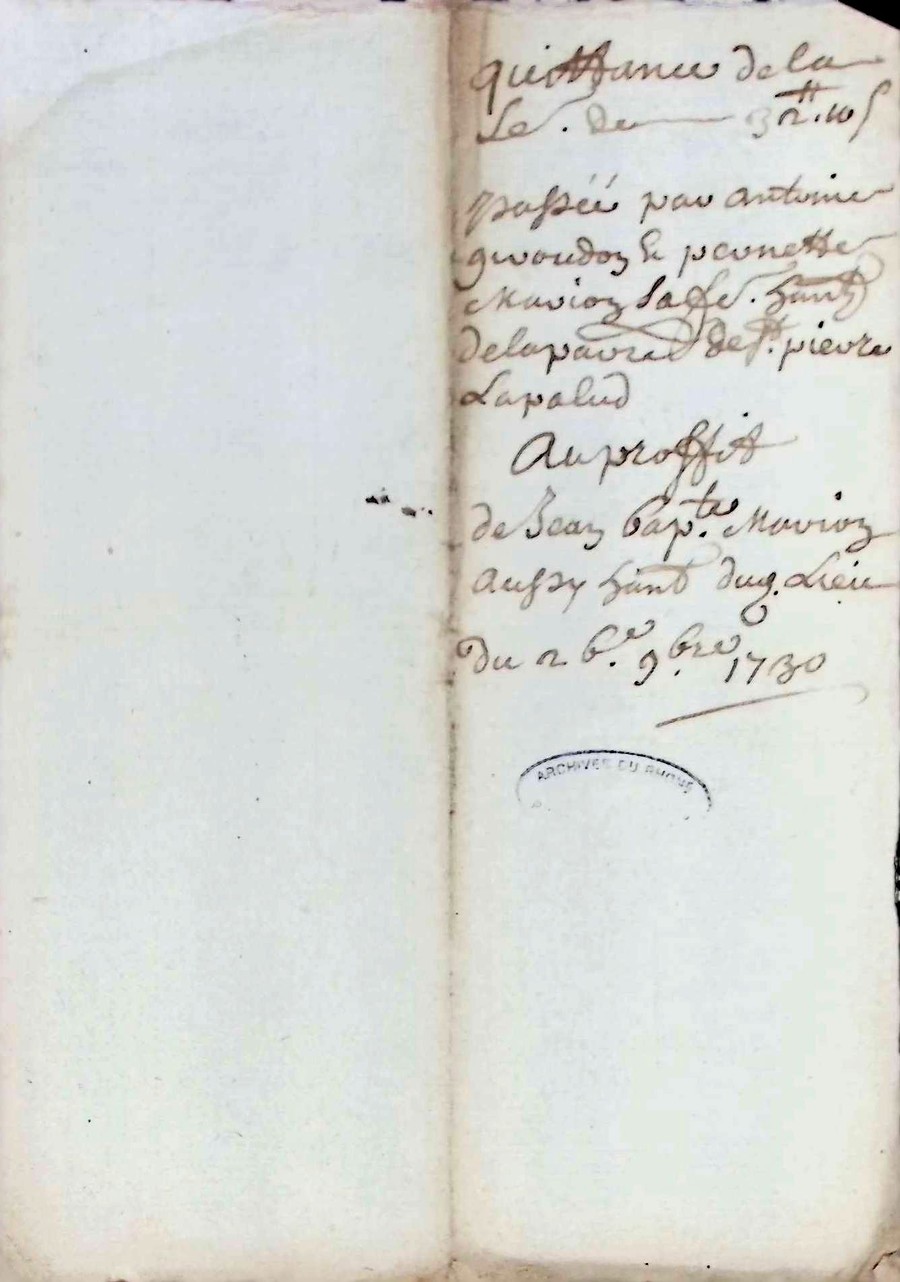 quittance de la
Se. de 32tt. 10 s
passéé par antoine
giroudon & pernette
Marion sa fe. hant
de la parre. de st. pierre
Lapalud
Au proffit
de Jean bapte. Marion
aussy hant dud. Lieu
du 26e. 9bre 1730
ARCHIVES DU RHONE